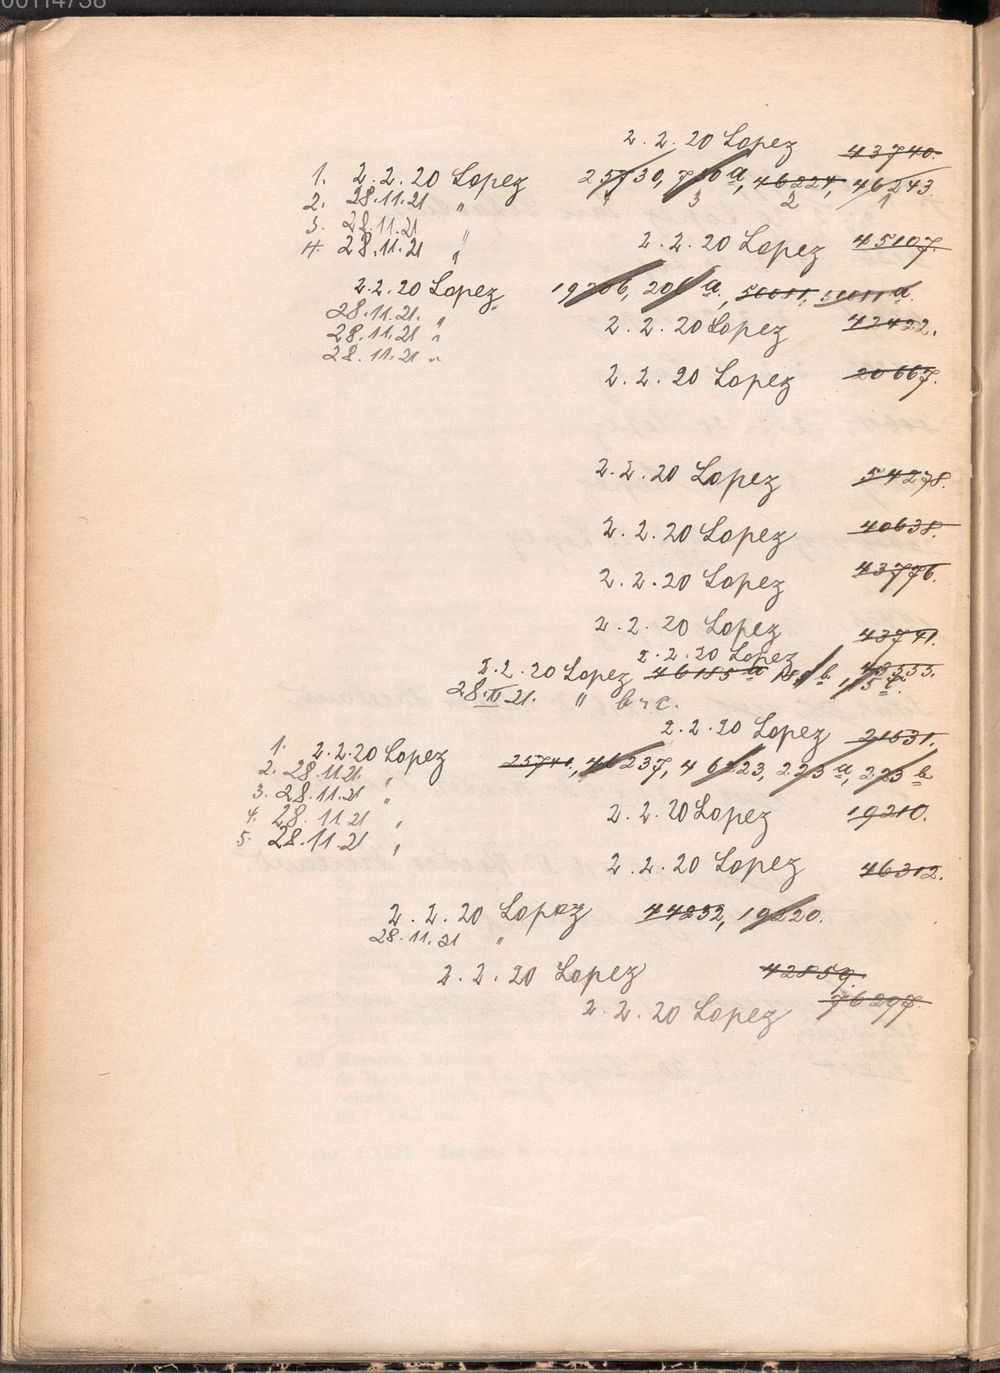 00114738
2.2.20 Lopez 43740.
1. 2.2.20 Lopez 25730, 730 a, 46224, 46243.
2. 28.11.21 " 4 3 2 1
3. 28.11.21 "
4. 28.11.21 "
2.2.20 Lopez 45107.
2.2.20 Lopez 19206, 206 a, 50011, 50011 a.
28.11.21. "
2.2.20 Lopez 42422.
28.11.21 "
28.11.21 "
2.2.20 Lopez 20667.
2.2.20 Lopez 54278.
2.2.20 Lopez 40638.
2.2.20 Lopez 43776.
2.2.20 Lopez 43741.
2.2.20 Lopez
2.2.20 Lopez 46185 a
28.II.21. " b u c.
2.2.20 Lopez 21631.
1. 2.2.20 Lopez 25741, 46237, 46223, 223 a, 223 b
2. 28.11.21 "
3. 28.11.21 "
4. 28.11.21 "
5. 28.11.21 "
2.2.20 Lopez 19210.
2.2.20 Lopez 46312.
2.2.20 Lopez 44232, 19220.
28.11.21 "
2.2.20 Lopez 42859.
2.2.20 Lopez 76297.